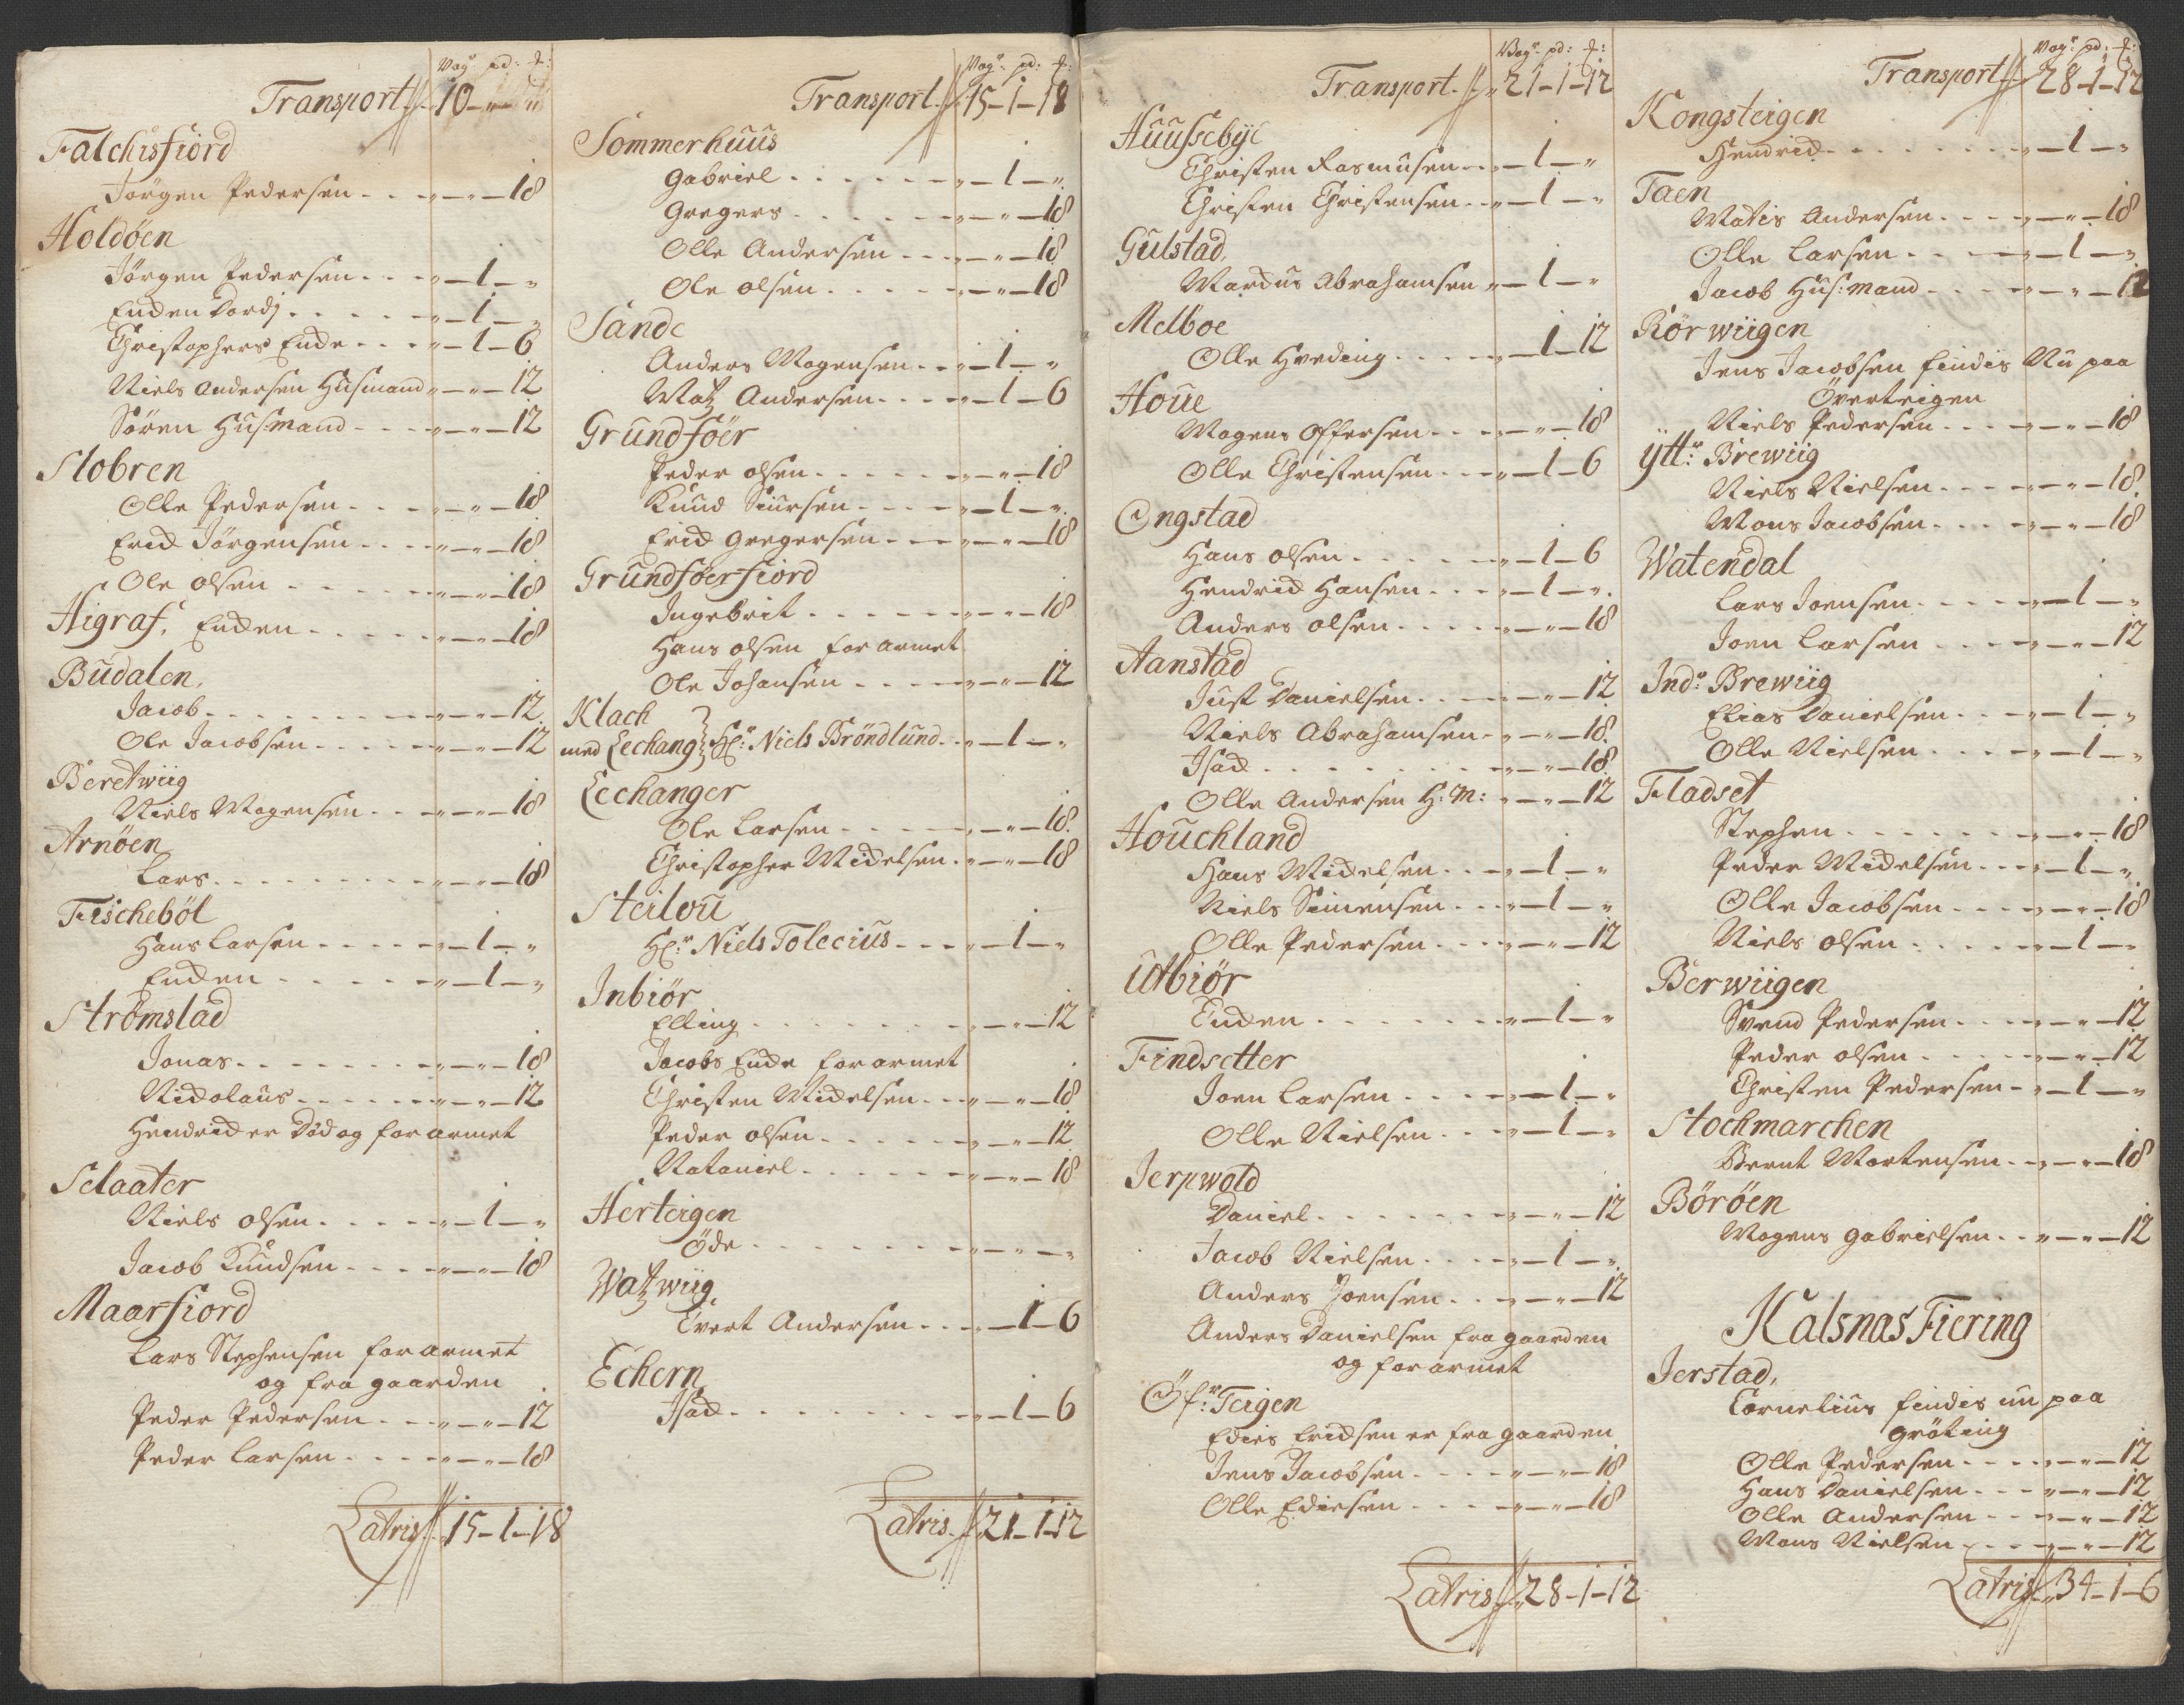 Vog: pd: #:
Transport 10 - " - "
Falchisfiord
Jørgen Pedersen - - - " - " - 18
Holdøen
Jørgen Pedersen - - - " - 1 - "
Enden Dordj - - - - " - 1 - "
Christophers Ende - - - " - 1 - 6
Niels Andersen Husmand " - " - 12
Søren Husmand - - - - " - " - 12
Slobren
Olle Pedersen - - - " - " - 18
Erich Jørgensen - - - " - " - 18
Ole olsen - - - - " - " - 18
Higraf, Enden - - - - " - " - 18
Budalen,
Jacob - - - - - - " - " - 12
Ole Jacobsen - - - - " - " - 12
Beretwiig
Niels Mogensen - - - " - " - 18
Arnøen
Lars - - - - - - " - " - 18
Fischebøl
Hans Larsen - - - - " - 1 - "
Enden - - - - - " - 1 - "
Strømstad
Jonas - - - - - - " - " - 18
Nicholaus - - - - - " - " - 12
Hendrich er død og forarmet
Selaater
Niels olsen - - - - " - 1 - "
Jacob Knudsen - - - - " - " - 18
Maarfiord
Lars Stephensen forarmet
og fra gaarden
Peder Pedersen - - - " - " - 12
Peder Larsen - - - - " - " - 18
Latris 15 - 1 - 18

Vog: pd: #:
Transport 15 - 1 - 18
Sommerhuus
Gabriel - - - - - " - 1 - "
Gregers - - - - - " - " - 18
Olle Andersen - - - " - " - 18
Ole olsen - - - - - " - " - 18
Sande
Anders Mogensen - - - " - 1 - "
Matz Andersen - - - - " - 1 - 6
Grundføer
Peder olsen - - - - - " - " - 18
Knud Siursen - - - - " - 1 - "
Erich Gregersen - - - " - " - 18
Grundføerfiord
Ingebrit - - - - - " - " - 18
Hans olsen forarmet
Ole Johansen - - - - " - " - 12
Klach
med Lechang Hr: Niels Brøndlund - - " - 1 - "
Lechanger
Ole Larsen - - - - " - " - 18
Christopher Michelsen - " - " - 18
Steilou
Hr: Niels Tolecius - - - " - 1 - "
Inbiør
Elling - - - - - - " - " - 12
Jacobs Ende forarmet
Christen Michelsen - - " - " - 18
Peder olsen - - - - - " - " - 12
Nataniel - - - - - " - " - 18
Herteigen
Øde - - - - - - " - " - "
Watzwiig,
Evert Andersen - - - " - 1 - 6
Echern
Isach - - - - - - " - 1 - 6
Latris 21 - 1 - 12

Vog: pd: #:
Transport 21 - 1 - 12
Huusebye
Christen Rasmusen - - " - 1 - "
Christen Christensen - - " - 1 - "
Gulstad,
Marchus Abrahamsen " - 1 - "
Melboe
Olle Hveding - - - - " - 1 - 12
Houe
Mogens Offersen - - - " - " - 18
Olle Christensen - - - " - 1 - 6
Ongstad
Hans olsen - - - - - " - 1 - 6
Hendrich Hansen - - - " - 1 - "
Anders olsen - - - - " - " - 18
Aanstad
Just Danielsen - - - " - " - 12
Niels Abrahamsen - " - " - 18
Isach - - - - - - - " - " - 18
Olle Andersen H: M: " - " - 12
Houchland
Hans Michelsen - - - " - 1 - "
Niels Simensen - - - " - 1 - "
Olle Pedersen - - - - " - " - 12
Utbiør
Enden - - - - - - " - 1 - "
Findsetter
Joen Larsen - - - - " - 1 - "
Olle Nielsen - - - " - 1 - "
Jerpwold
Daniel - - - - - - " - " - 12
Jacob Nielsen - - - - " - 1 - "
Anders Joensen - - - " - " - 12
Anders Danielsen fra gaarden
og forarmet
Øfr: Teigen
Edies Erichsen er fra gaarden
Jens Jacobsen - - - - " - " - 18
Olle Ediesen - - - - " - " - 18
Latris 28 - 1 - 12

Vog: pd: #:
Transport 28 - 1 - 12
Kongsteigen
Hendrich - - - - - - " - 1 - "
Taen
Matis Andersen - - - " - " - 18
Olle Larsen - - - - " - 1 - "
Jacob Hus:mand - - - " - " - 12
Rørwiigen
Jens Jacobsen findis Nu paa
Øverteigen
Niels Pedersen - - - " - " - 18
Ytt: Brewiig
Niels Nielsen - - - - " - " - 18
Mons Jacobsen - - - " - " - 18
Watendal
Lars Joensen - - - - " - 1 - "
Joen Larsen - - - - " - " - 12
Ind: Brewiig
Elias Danielsen - - - " - 1 - "
Olle Nielsen - - - - " - 1 - "
Fladset
Stephen - - - - - " - " - 18
Peder Michelsen - - - " - 1 - "
Olle Jacobsen - - - " - " - 18
Niels olsen - - - - - " - 1 - "
Berwiigen
Svend Pedersen - - - " - " - 12
Peder olsen - - - - " - " - 12
Christen Pedersen - " - 1 - "
Stochmarchen
Bernt Mortensen - - " - " - 18
Børøen
Mogens Gabrielsen - - " - " - 12
Kalsnas Fiering
Jerstad,
Cornelius findis nu paa
grøting
Olle Pedersen - - - " - " - 12
Hans Danielsen - - - " - " - 12
Olle Andersen - - - " - " - 12
Mons Nielsen - - - " - " - 12
Latris 34 - 1 - 6